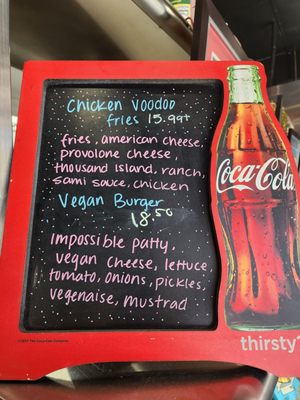 Chicken Voodoo
fries 15.99+
fries, american cheese,
provolone cheese,
thousand island, ranch,
sami sauce, chicken
Vegan Burger
18.50
Impossible patty,
vegan cheese, lettuce,
tomato, onions, pickles,
vegenaise, mustrad
Coca-Cola
thirsty?